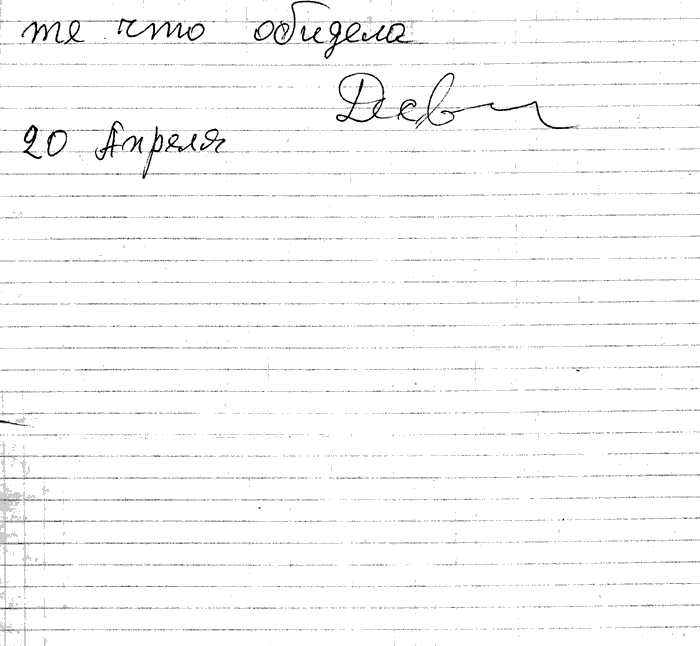 те что обидела
20 Апреля